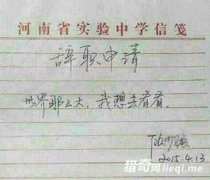 河南省实验中学信笺
辞职申请
世界那么大，我想去看看。
2015.4.13
猎奇网
www.liqi.me.com